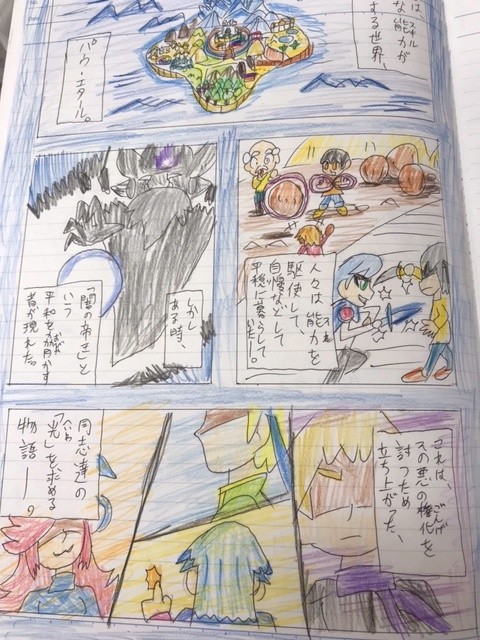 は、
な能力が
スキル
する世界、
パウ・エタール。
人々は能力を
駆使して、
自慢などして
平穏に暮らして
いたー。
しかし
ある時、
「闇の帝き」と
いう
平和を脅かす
者が現れた。
これは、
その悪の権化を
ごんげ
討つため
立ち上がった、
同志達の
「光」を求める
物語ー。